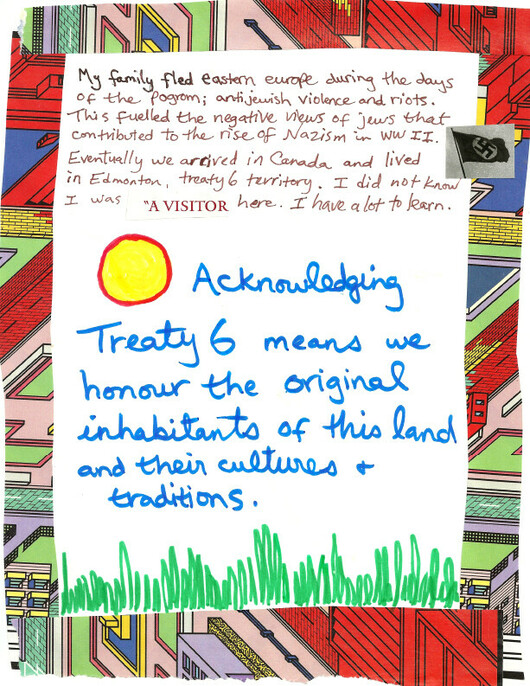 My family fled eastern europe during the days
of the pogrom; antijewish violence and riots.
This fuelled the negative views of jews that
contributed to the rise of Nazism in WW II.
Eventually we arrived in Canada and lived
in Edmonton, treaty 6 territory. I did not know
I was "A VISITOR here. I have a lot to learn.
Acknowledging
Treaty 6 means we
honour the original
inhabitants of this land
and their cultures +
traditions.